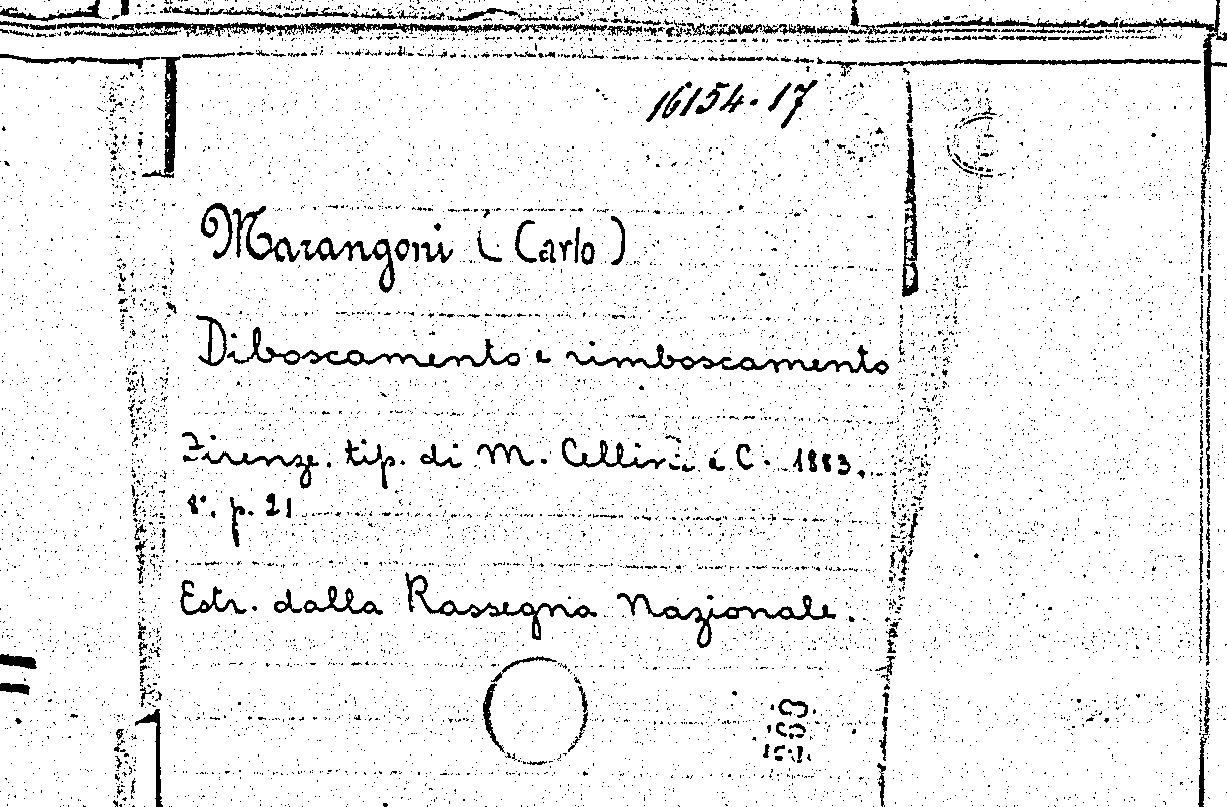 16154.17
Marangoni (Carlo)
Diboscamento e rimboscamento
Firenze. tip. di M. Cellini e C. 1883.
8°. p. 21
Estr. dalla Rassegna Nazionale.